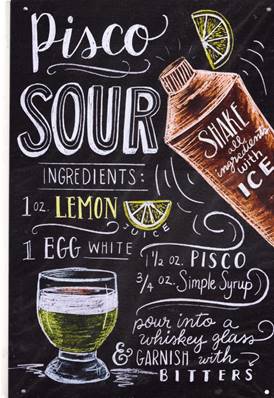 Pisco
SOUR
SHAKE
all
ingredients
with
ICE
INGREDIENTS:
1 oz. LEMON
JUICE
1 EGG WHITE
1 1/2 oz. PISCO
3/4 oz. Simple Syrup
pour into a
whiskey glass
& GARNISH with
BITTERS